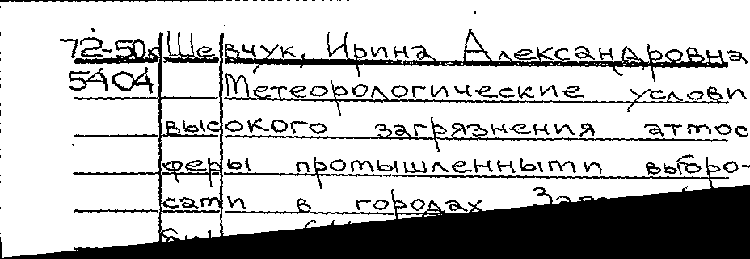 72-50к Шевчук, Ирина Александровна
5404 Метеорологические услови
высокого загрязнения атмос
феры промышленными выбро-
сами в городах